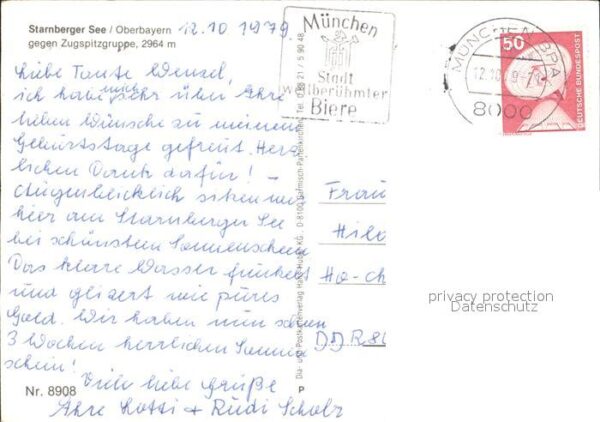 Starnberger See / Oberbayern
gegen Zugspitzgruppe, 2964 m
12.10 1979
Liebe Tante Wensel,
ich habe mich sehr über Ihre
lieben Wünsche zu meinem
Geburtstage gefreut. Herz-
lichen Dank dafür! –
Augenblicklich sitzen wir
hier am Starnberger See
bei schönstem Sonnenschein
Das klare Wasser funkelt
und glizert wie pures
Gold. Wir haben nun schon
3 Wochen herrlichen Sonnen
schein!
Viele liebe Grüße
Ihre Lotti + Rudi Scholz
Nr. 8908
P
Dia- und Postkartenverlag Hans Huber KG D-8100 Garmisch-Partenkirchen Tel. 0 88 21 / 5 90 48
München
Stadt
weltberühmter
Biere
MÜNCHEN BPA
12.10
8000
50
DEUTSCHE BUNDESPOST
Frau
Ho-ch
DDR
privacy protection
Datenschutz